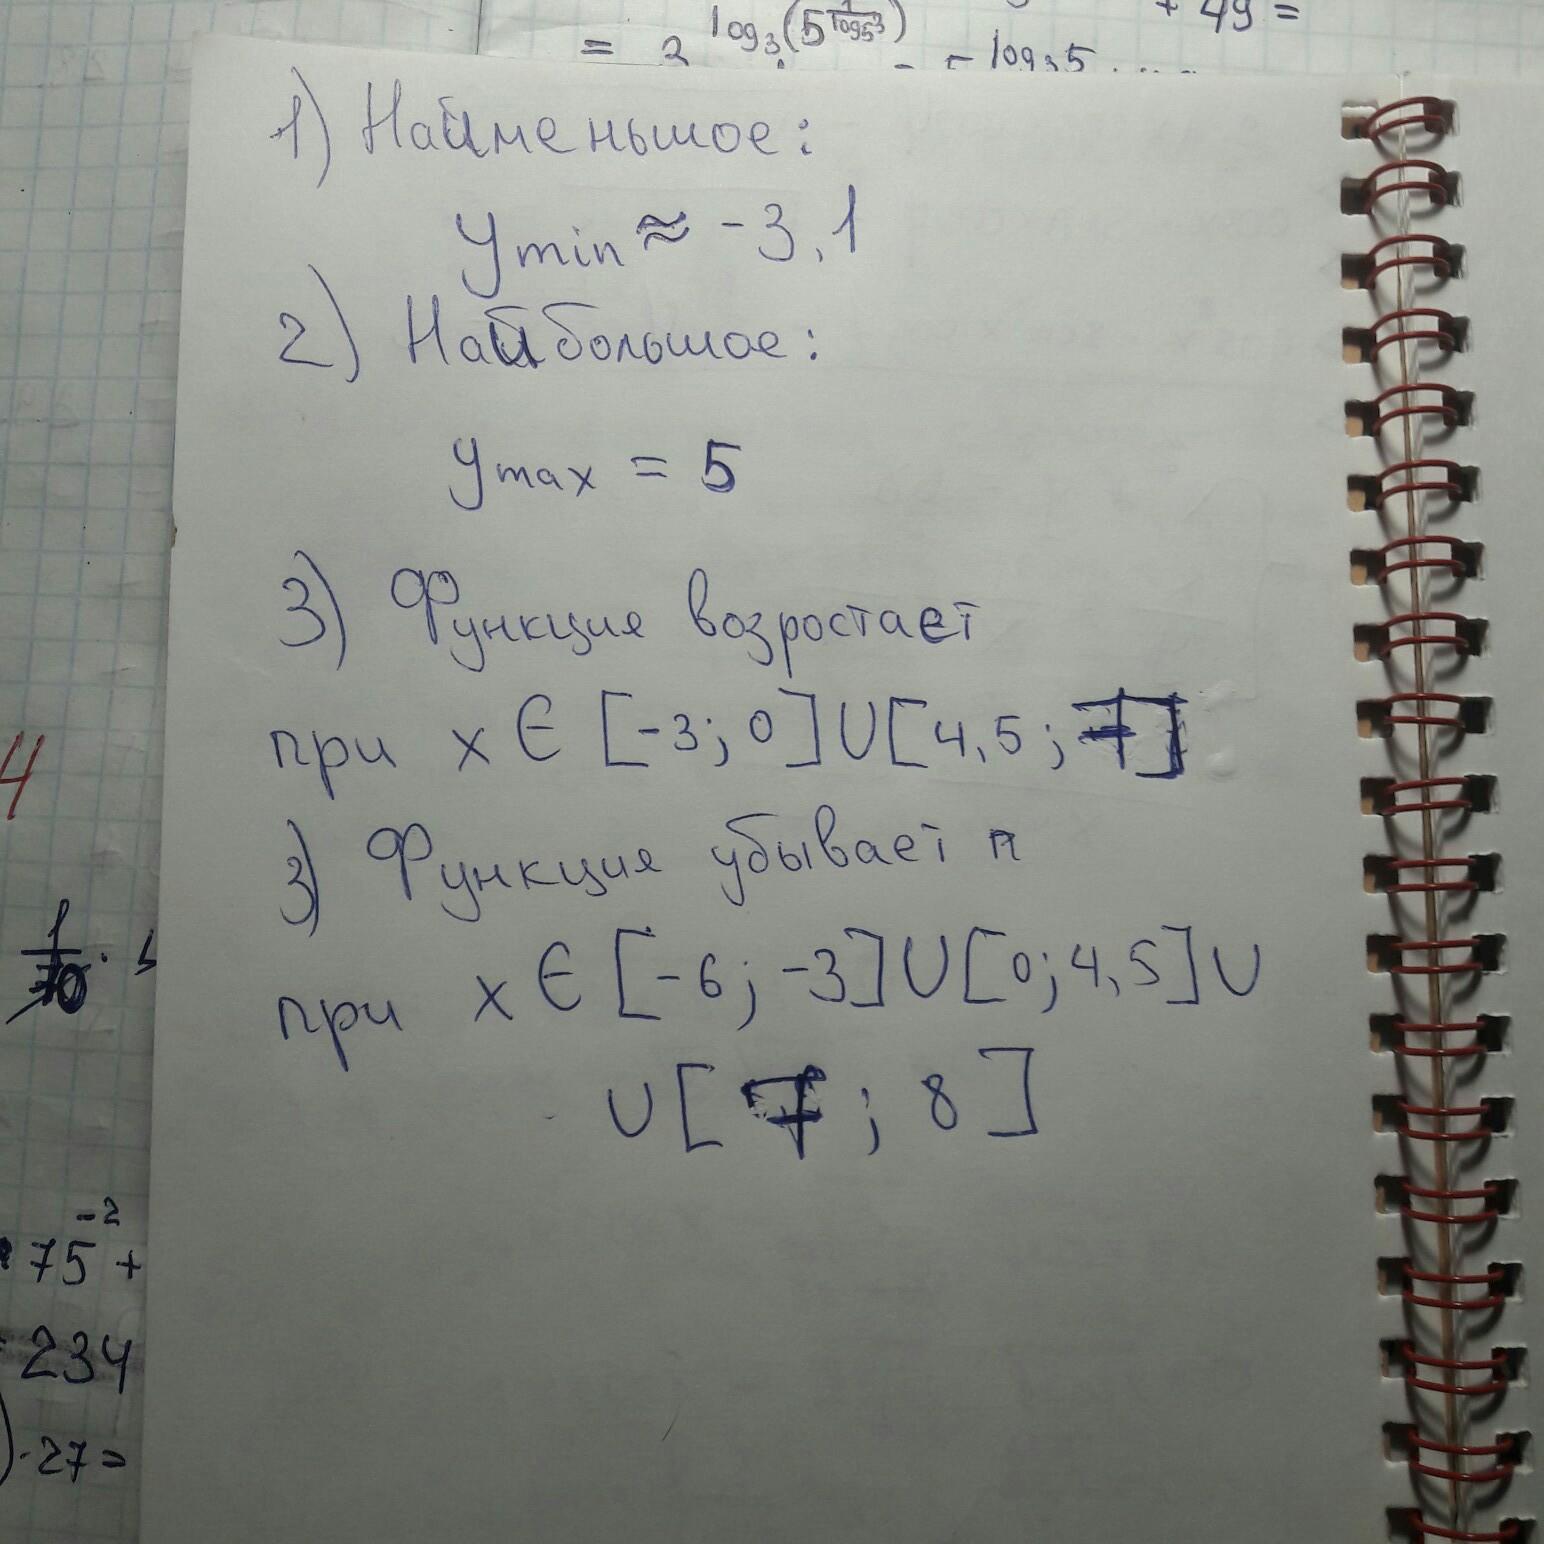 + 49 =
= 3 log₃(5^(1/log₅3)) - 5 log₃5
1) Найменьшое:
y min ≈ -3,1
2) Найбольшое:
y max = 5
3) Функция возростает
при x ∈ [-3; 0] ∪ [4,5; 7]
3) Функция убывает п
при x ∈ [-6; -3] ∪ [0; 4,5] ∪
∪ [7; 8]
4
75⁻² +
234
·27=